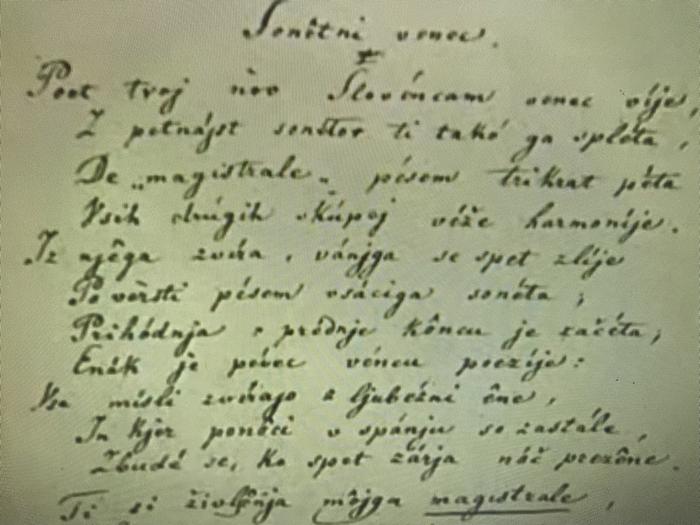 Sonêtni venec.
I
Poet tvoj nov Slovéncam venec víje,
Z petnájst sonétov ti takó ga spléta,
De „magistrale„ pésem trikrat péta
Vsih drúgih skúpej véže harmoníje.
Iz njêga zvira, vánjga se spet zlíje
Po vèrsti pésem vsáciga sonéta;
Prihódnja s prédnje kôncu je začéta;
Enák je pévec véncu poezíje:
Vse mísli zvirajo z ljubézni êne,
In kjer ponôči v spánju so zastále,
Zbudé se, ko spet zárja nóč prezêne.
Ti si življênja môjga magistrale,